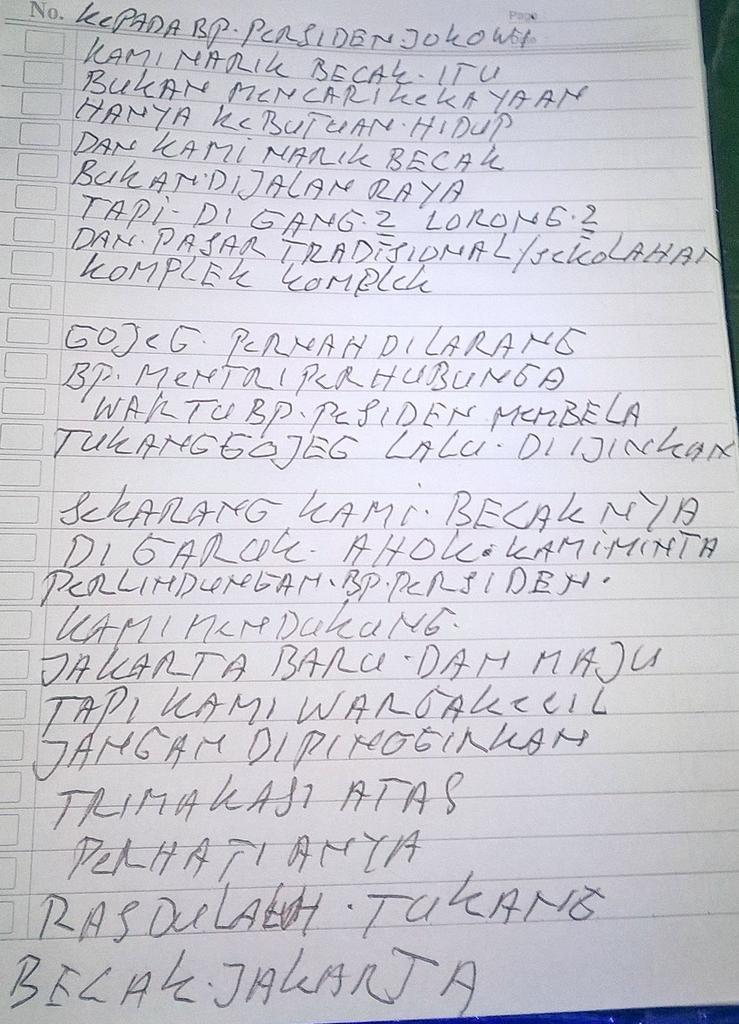 No. Page
KEPADA BP. PERSIDEN JOKOWI
KAMI NARIK BECAK. ITU
BUKAN MENCARI KEKAYAAN
HANYA KEBUTUAN. HIDUP
DAN KAMI NARIK BECAK
BUKAN. DIJALAN RAYA
TAPI. DI GANG.2 LORONG.2
DAN. PASAR TRADISIONAL/SEKOLAHAN
KOMPLEK KOMPLEK
GOJEG. PERNAH DILARANG
BP. MENTRI PERHUBUNGA
WAKTU BP. PESIDEN MEMBELA
TUKANG GOJEG LALU. DI IJINKAN
SEKARANG KAMI. BECAKNYA
DI GARUK. AHOK. KAMI MINTA
PERLINDUNGAN. BP. PERSIDEN.
KAMI MENDUKUNG.
JAKARTA BARU. DAN MAJU
TAPI KAMI WARGA KECIL
JANGAN DIPINGGIRKAN
TRIMAKASI ATAS
PERHATIANYA
RASDULAH. TUKANG
BECAK. JAKARTA